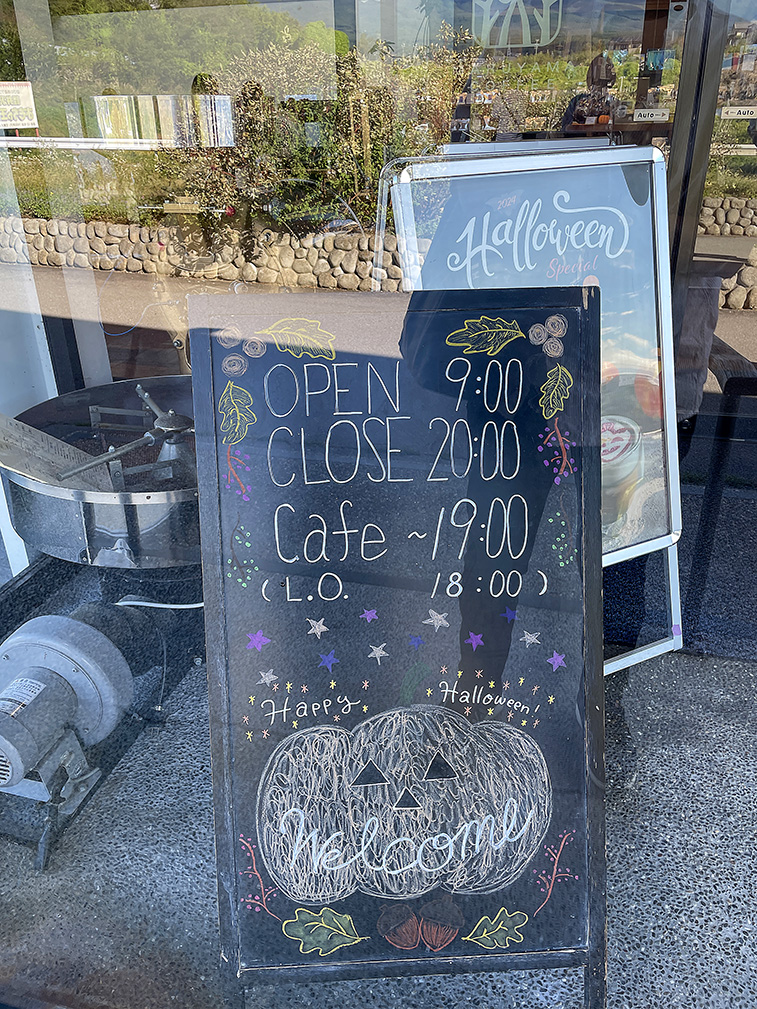 Auto
Auto
2024
Halloween
Special
OPEN 9:00
CLOSE 20:00
Cafe ~19:00
(L.O. 18:00)
Happy Halloween!
Welcome